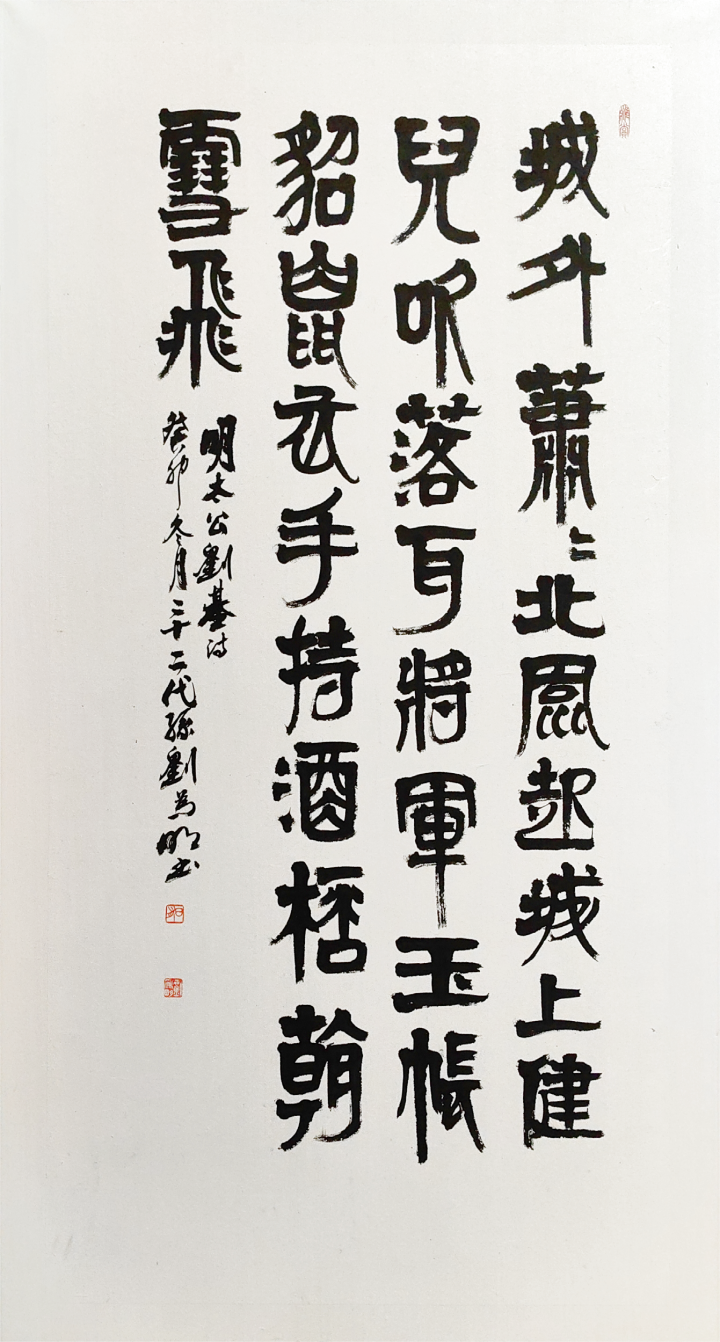 城外蕭〻北風起城上健
兒吹落耳將軍玉帳
貂鼠衣手持酒桮看
雪飛
明太公劉基詩
癸卯冬月二十二代孫劉為明書